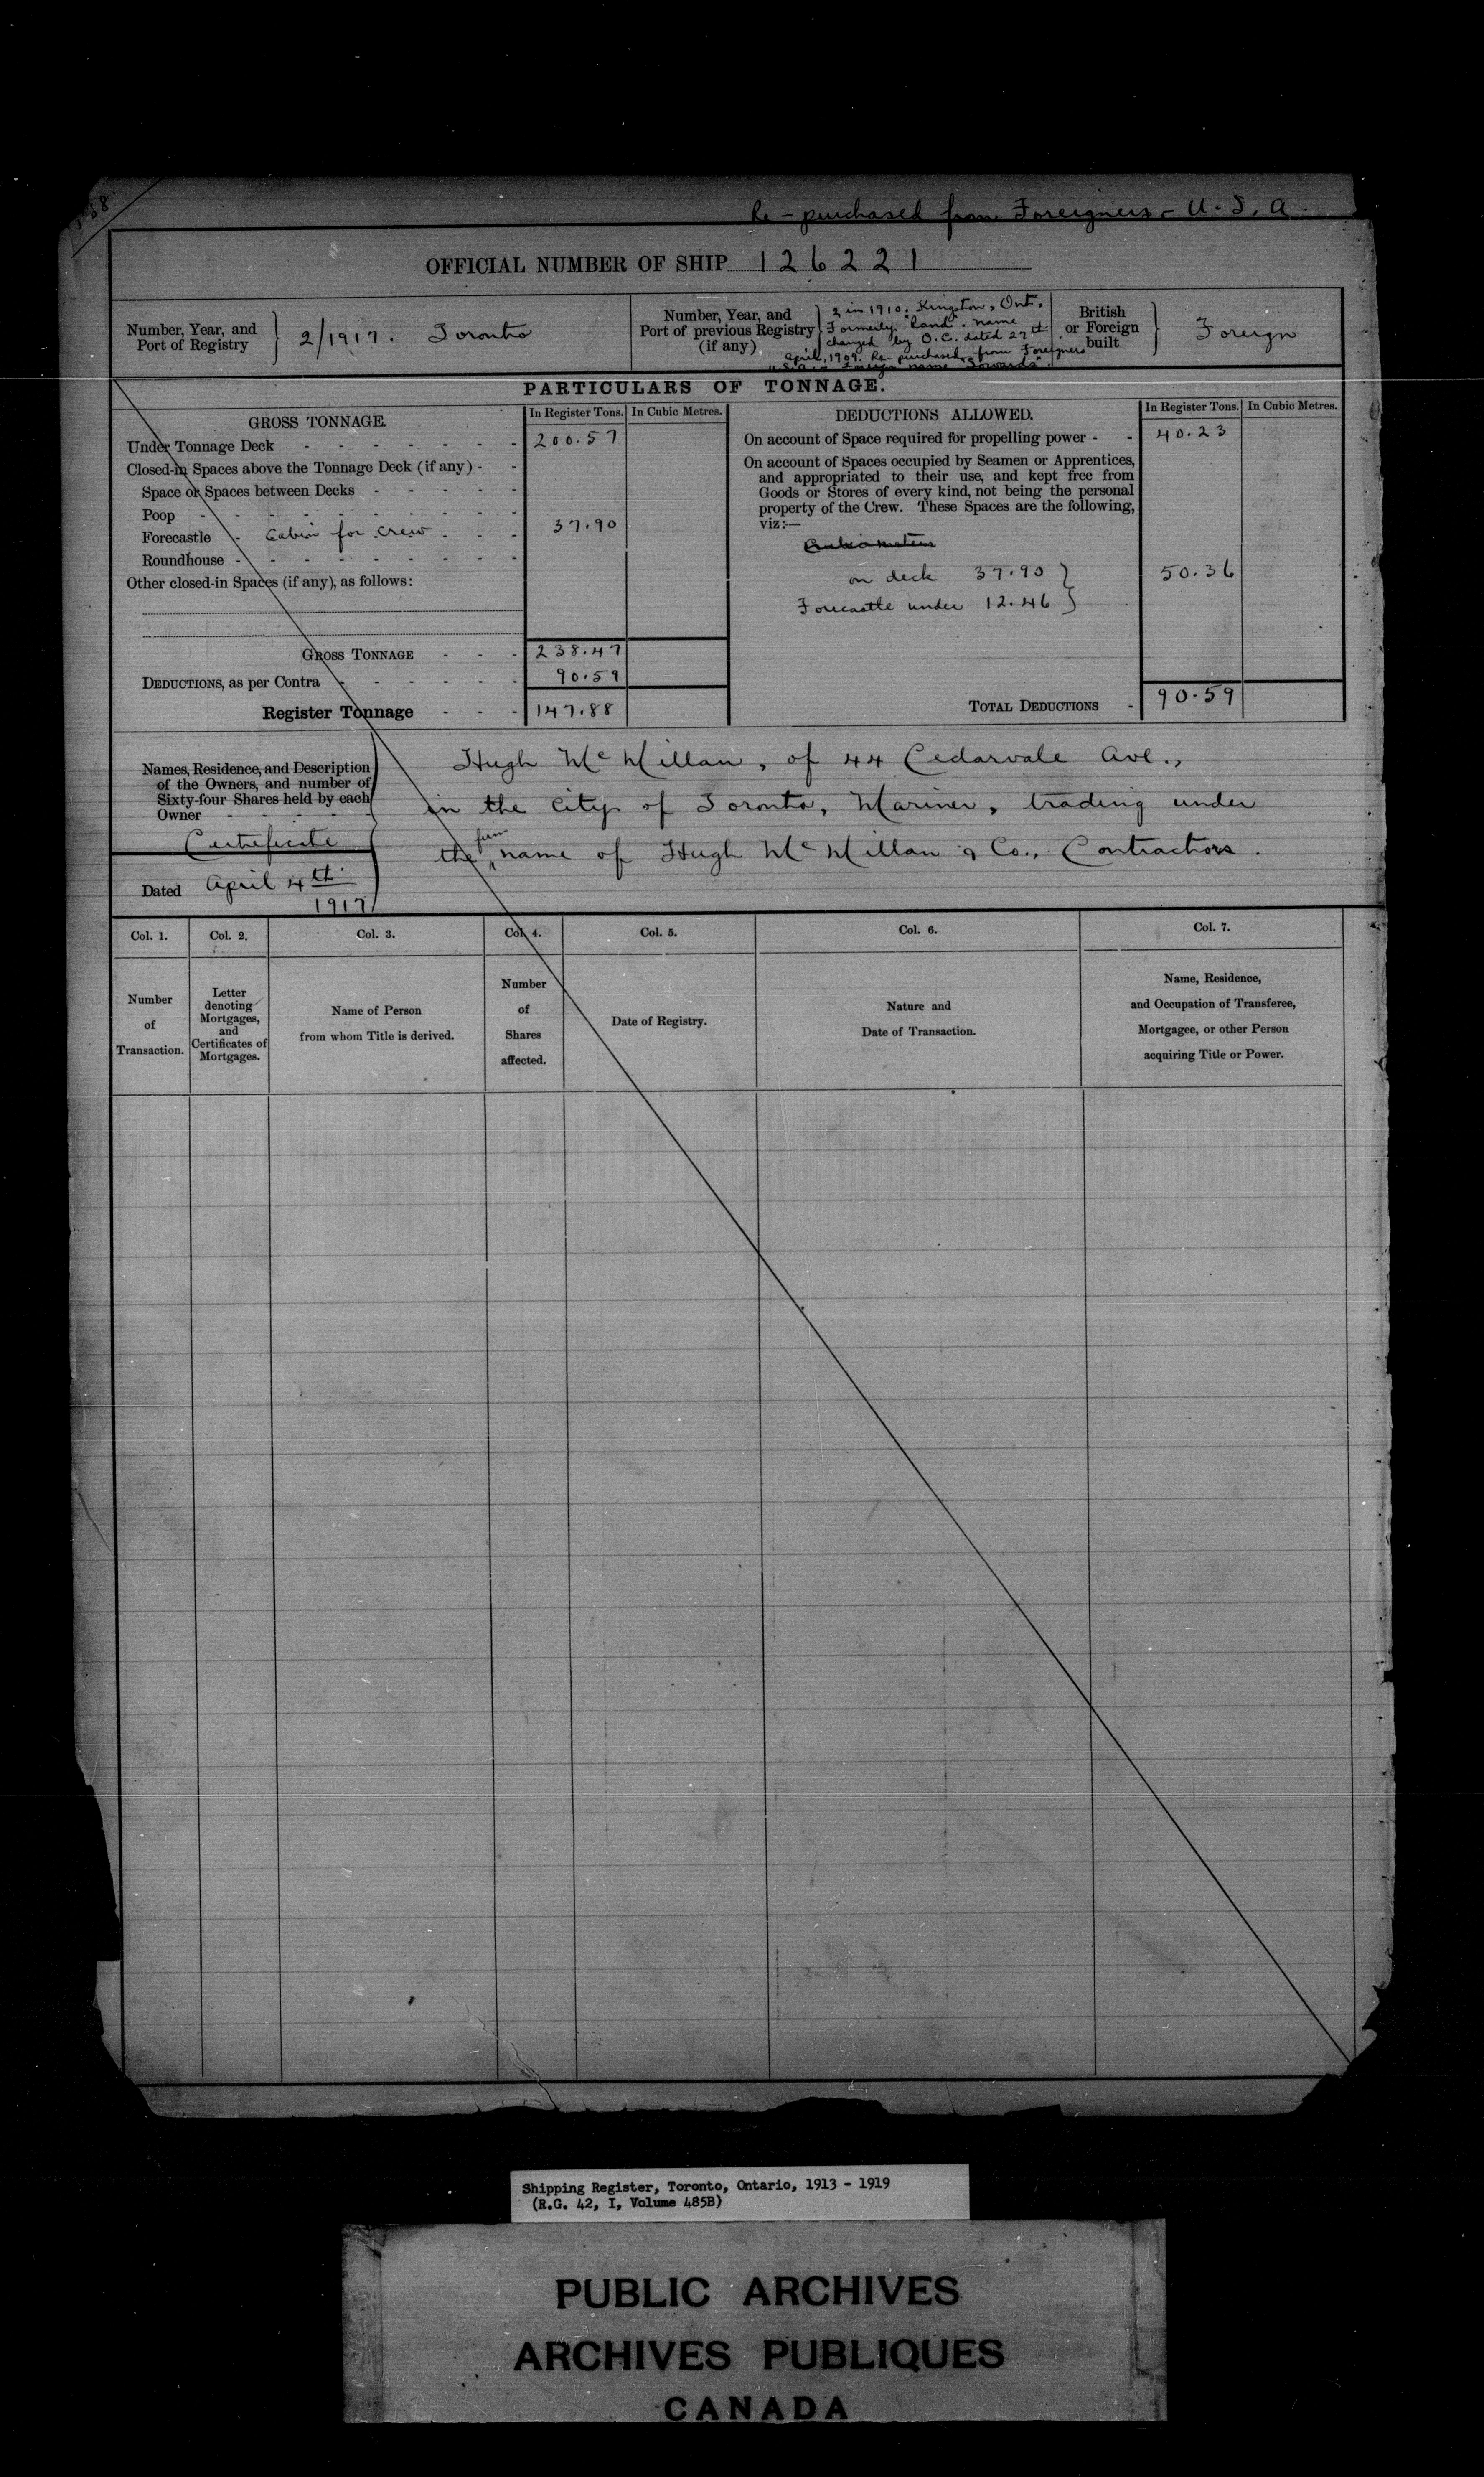 Re-purchased from Foreigners - U.S.A
OFFICIAL NUMBER OF SHIP 126221
Number, Year, and Port of Registry } 2/1917. Toronto
Number, Year, and Port of previous Registry (if any) }
2 in 1910. Kingston, Ont.
Formerly "Rand". name
changed by O.C. dated 27th
April, 1909. Re-purchased from Foreigners
U.S.A. - Foreign name
British or Foreign built } Foreign
PARTICULARS OF TONNAGE.
GROSS TONNAGE. In Register Tons. In Cubic Metres.
Under Tonnage Deck - - - - - - - 200.57
Closed-in Spaces above the Tonnage Deck (if any) - -
Space or Spaces between Decks - - - - -
Poop - - - - - - - - - -
Forecastle - Cabin for crew - - - 37.90
Roundhouse - - - - - - - - -
Other closed-in Spaces (if any), as follows:
GROSS TONNAGE - - - 238.47
DEDUCTIONS, as per Contra - - - - - - 90.59
Register Tonnage - - - 147.88
DEDUCTIONS ALLOWED. In Register Tons. In Cubic Metres.
On account of Space required for propelling power - - 40.23
On account of Spaces occupied by Seamen or Apprentices,
and appropriated to their use, and kept free from
Goods or Stores of every kind, not being the personal
property of the Crew. These Spaces are the following,
viz:—
on deck 37.90 }
50.36
Forecastle under 12.46 }
TOTAL DEDUCTIONS - 90.59
Names, Residence, and Description
of the Owners, and number of
Sixty-four Shares held by each
Owner - - - - - -
Certificate
Dated April 4th
1917
Hugh McMillan, of 44 Cedarvale Ave.,
in the City of Toronto, Mariner, trading under
the firm name of Hugh McMillan & Co., Contractors.
Col. 1. Col. 2. Col. 3. Col. 4. Col. 5. Col. 6. Col. 7.
Number of Transaction.
Letter denoting Mortgages, and Certificates of Mortgages.
Name of Person from whom Title is derived.
Number of Shares affected.
Date of Registry.
Nature and Date of Transaction.
Name, Residence, and Occupation of Transferee, Mortgagee, or other Person acquiring Title or Power.
Shipping Register, Toronto, Ontario, 1913 - 1919
(R.G. 42, I, Volume 485B)
PUBLIC ARCHIVES
ARCHIVES PUBLIQUES
CANADA